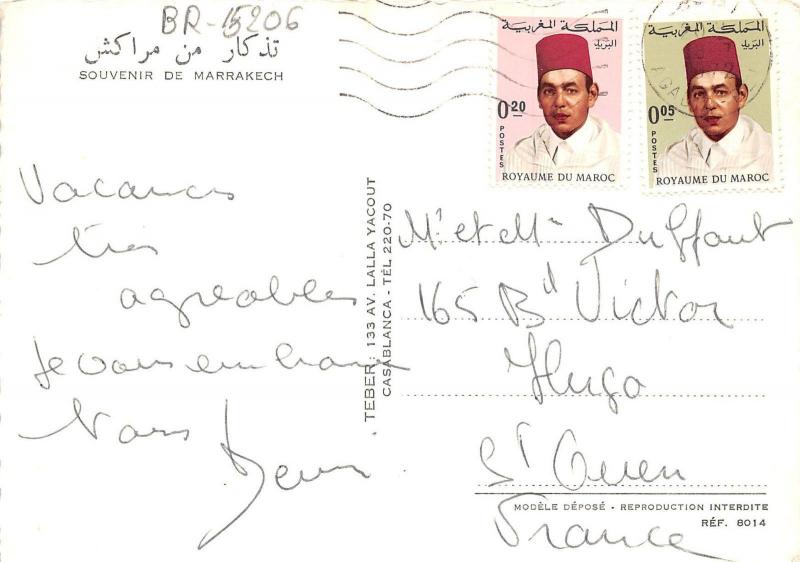 BR-15206
تذكار من مراكش
SOUVENIR DE MARRAKECH
Vacances
très
agréables
Je vous embrasse
Tous
المملكة المغربية
البريد
0.20
POSTES
ROYAUME DU MAROC
المملكة المغربية
البريد
0.05
POSTES
ROYAUME DU MAROC
AGAD
TEBER : 133 AV. LALLA YACOUT
CASABLANCA - TÉL 220-70
Mr et Mme Duffaut
165 Bd Victor
Hugo
St Ouen
France
MODÈLE DÉPOSÉ - REPRODUCTION INTERDITE
RÉF. 8014